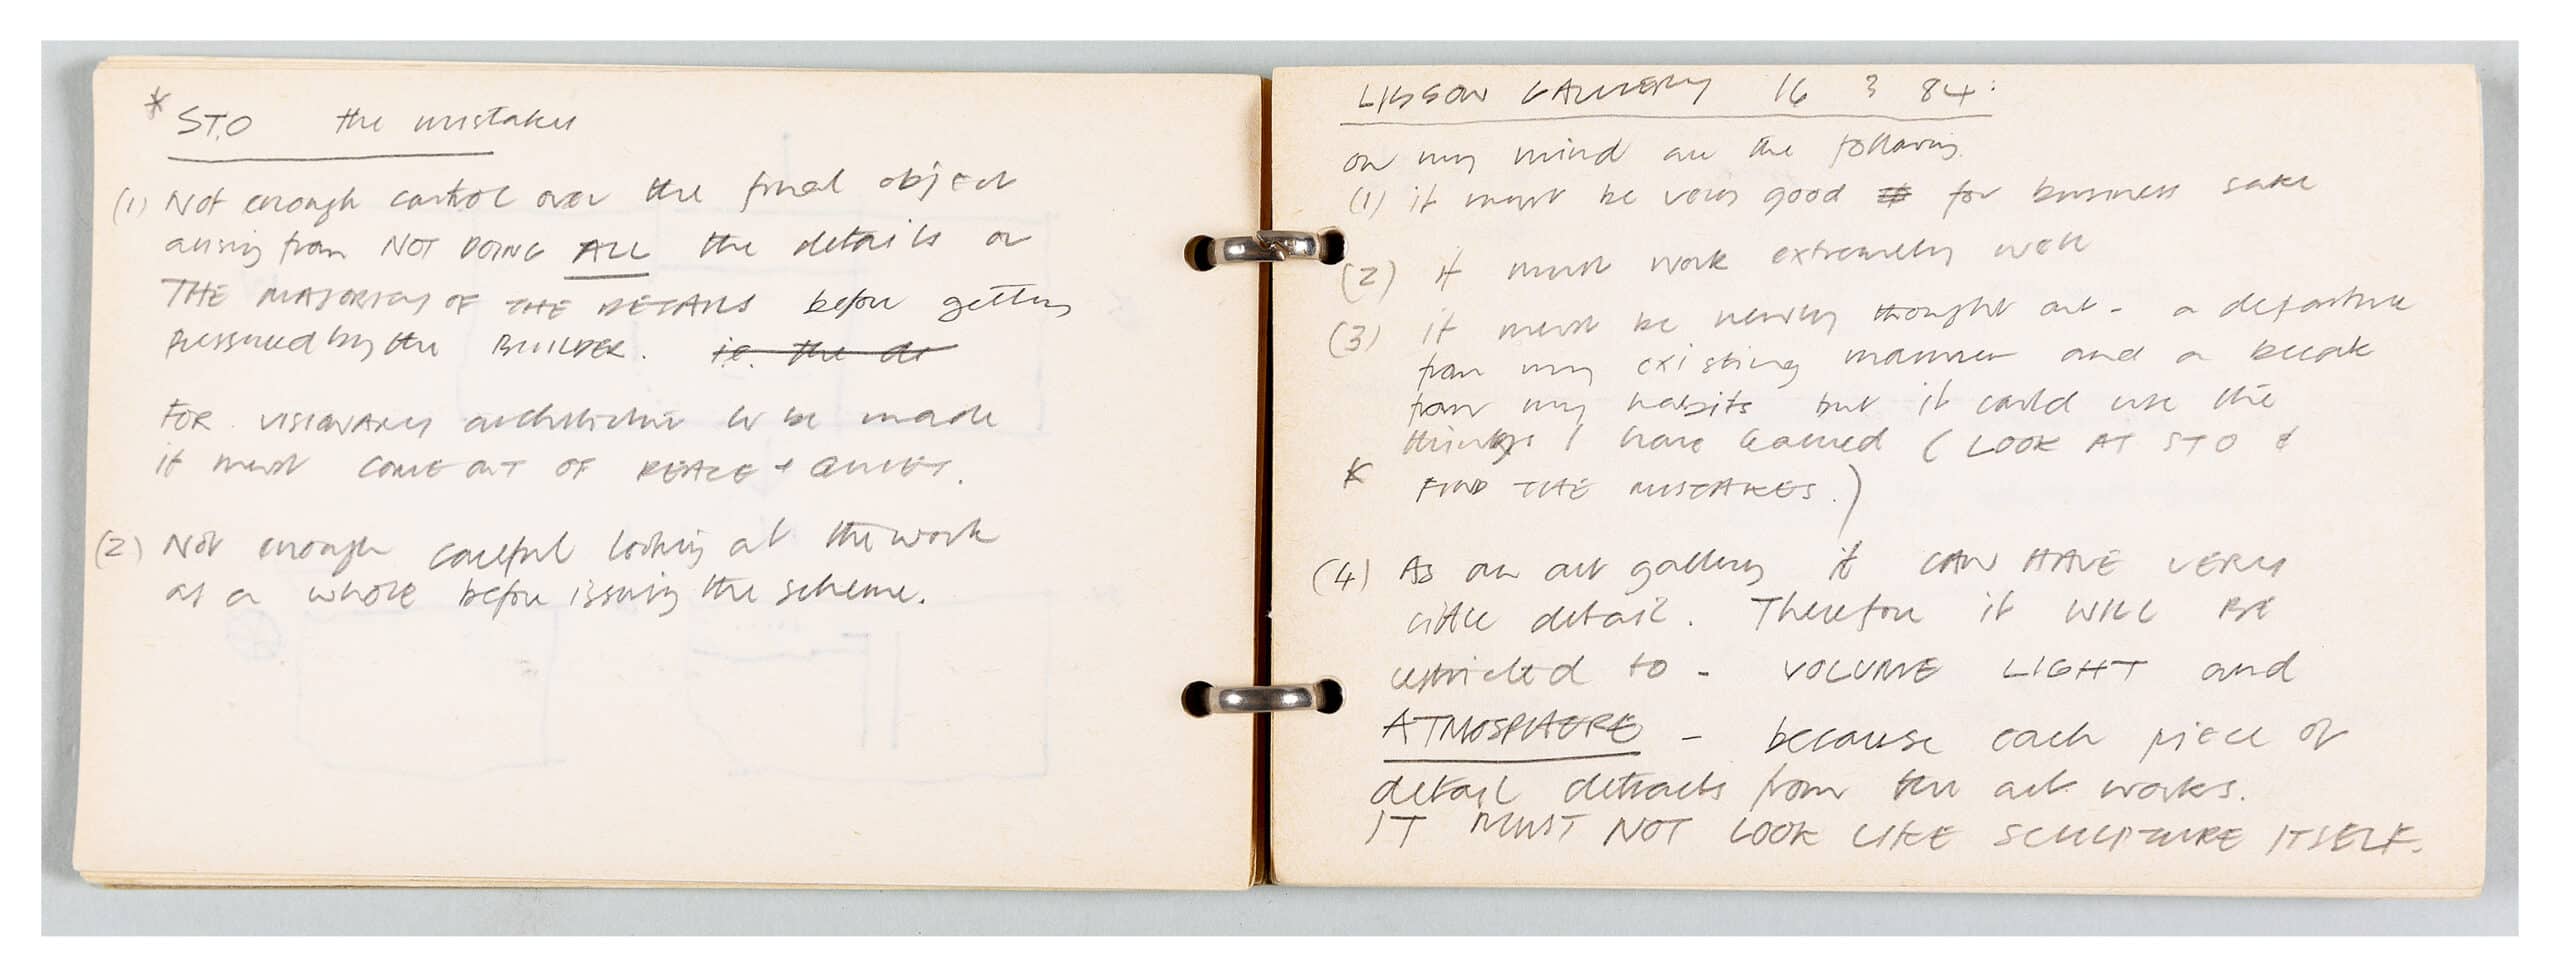 * STO the mistakes
(1) Not enough control over the final object
arising from NOT DOING ALL the details or
THE MAJORITY OF THE DETAILS before getting
pressured by the BUILDER. ie. the de
FOR VISIONARY architecture to be made
it must COME OUT OF PEACE + QUIET.
(2) Not enough careful looking at the work
as a whole before issuing the scheme.
LISSON GALLERY 16 3 84:
on my mind are the following.
(1) it must be very good for business sake
(2) it must work extremely well
(3) it must be newly thought out - a departure
from my existing manner and a break
from my habits but it could use the
things I have learned (LOOK AT STO &
* FIND THE MISTAKES.)
(4) As an art gallery it CAN HAVE VERY
little detail. Therefore it WILL BE
restricted to - VOLUME LIGHT and
ATMOSPHERE - because each piece of
detail detracts from the art works.
IT MUST NOT LOOK LIKE SCULPTURE ITSELF.